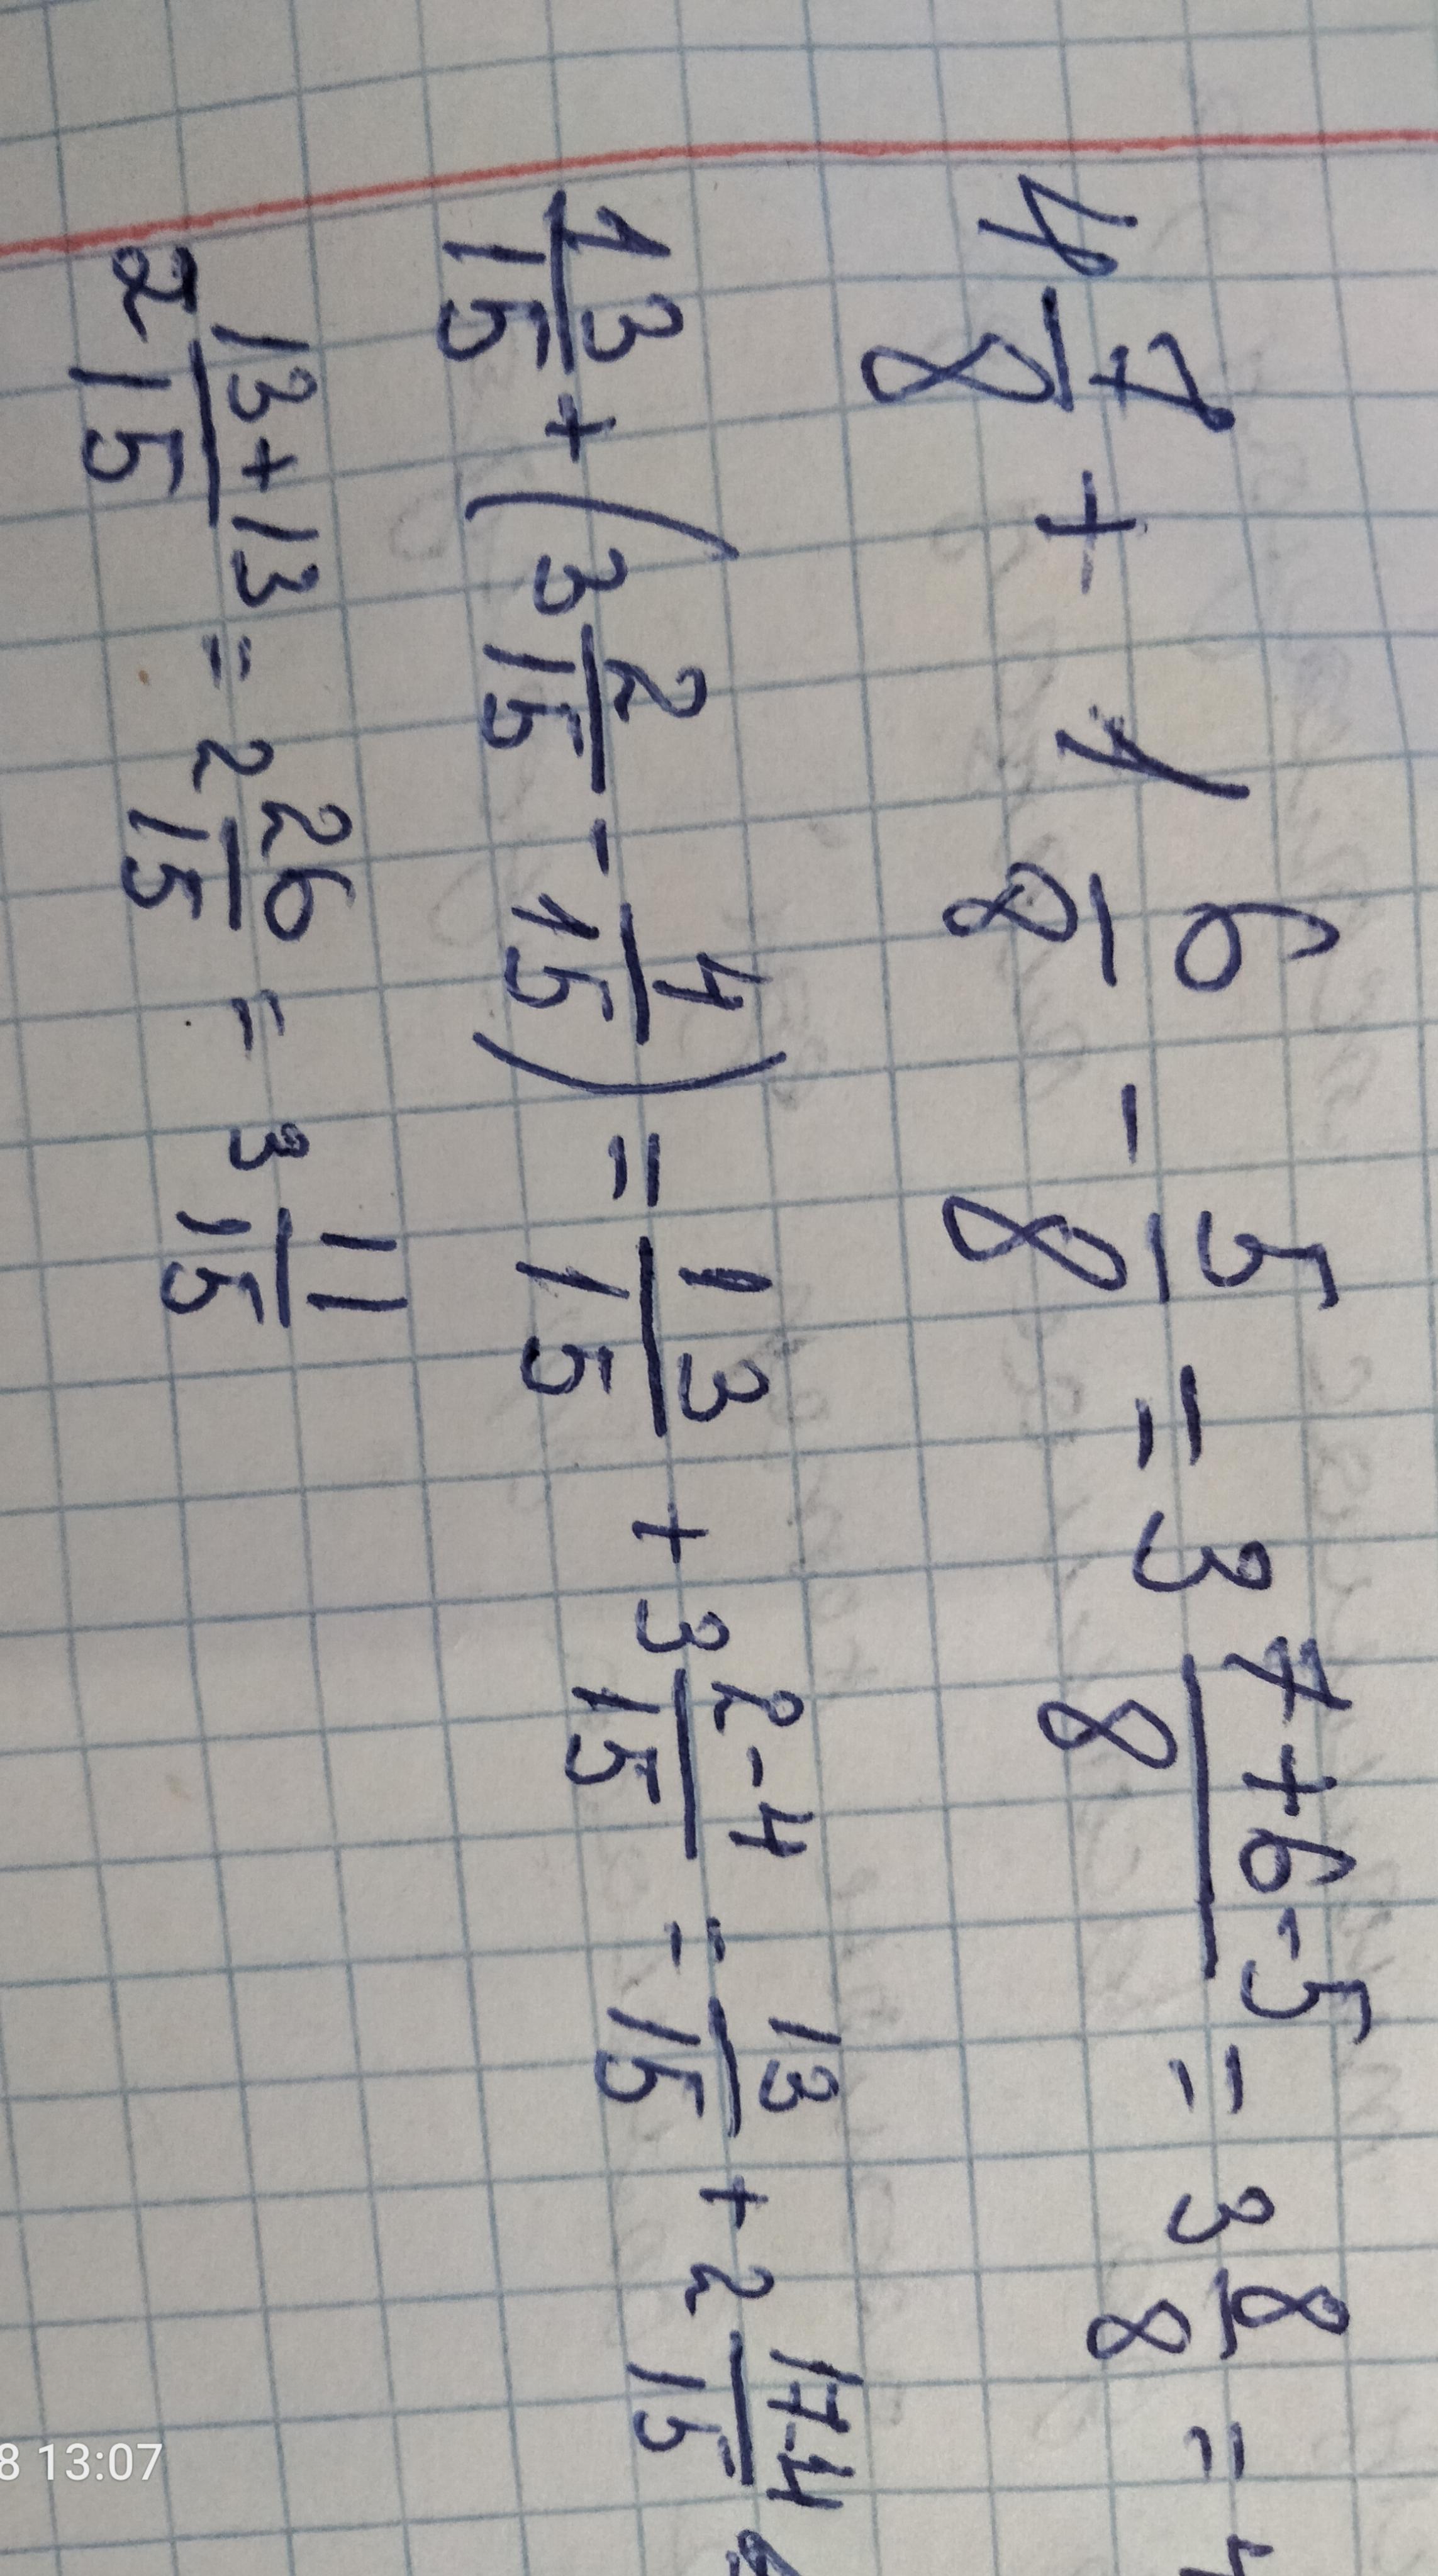 4 7/8 + 1 6/8 - 5/8 = 3 7+6-5/8 = 3 8/8 = 4
13/15 + (3 2/15 - 4/15) = 13/15 + 3 2-4/15 = 13/15 + 2 17-4/15
2 13+13/15 = 2 26/15 = 3 11/15
8 13:07